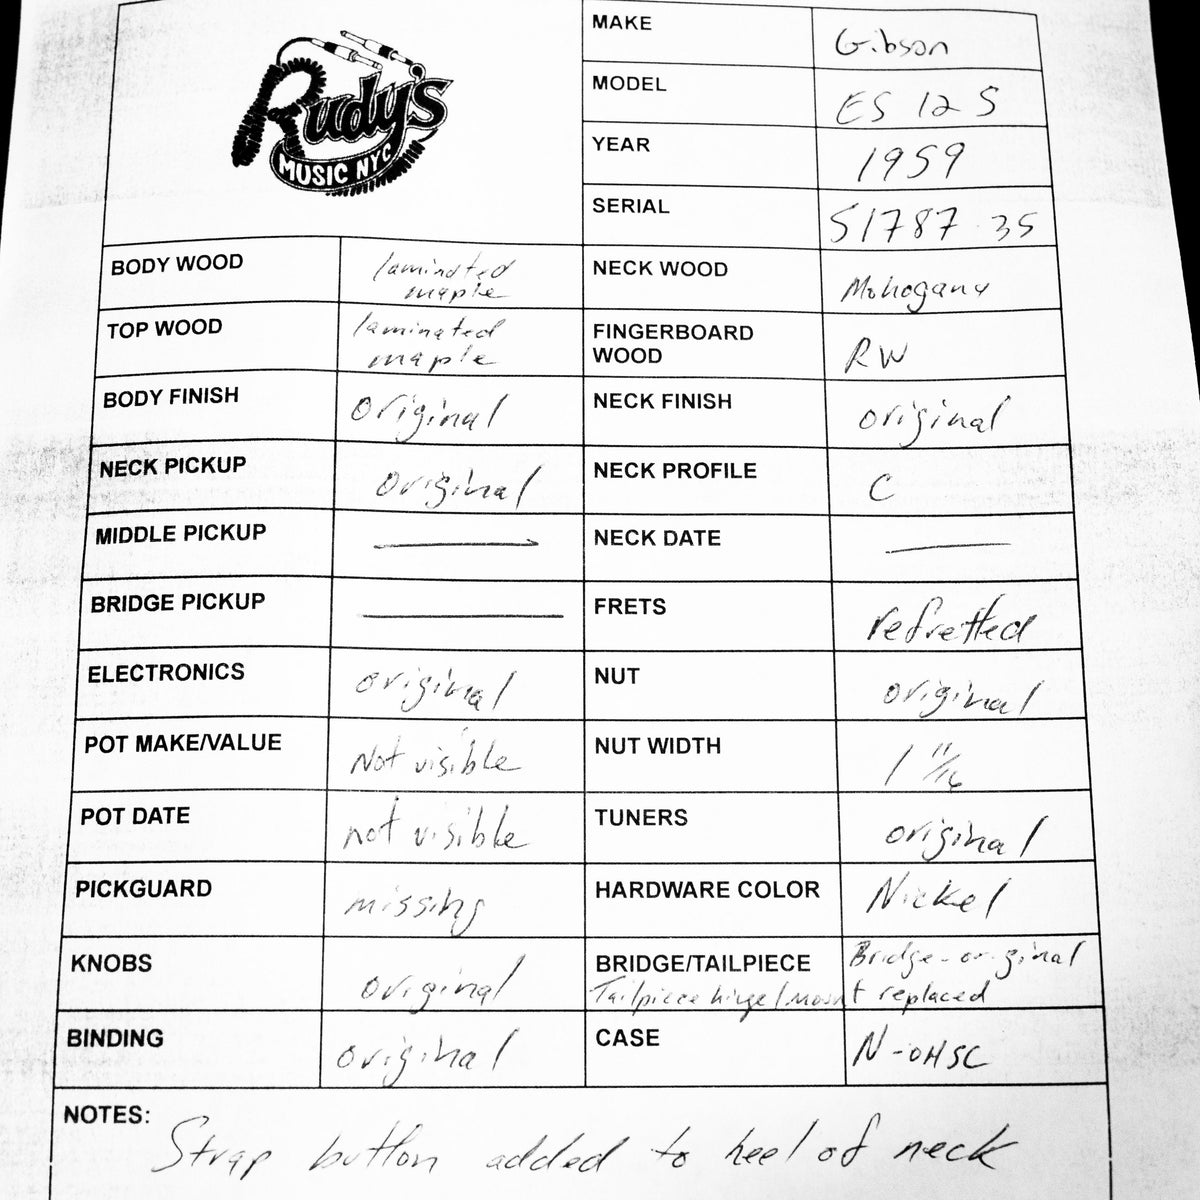 Rudy's
MUSIC NYC
MAKE Gibson
MODEL ES 125
YEAR 1959
SERIAL S1787 35
BODY WOOD laminated maple
NECK WOOD Mahogany
TOP WOOD laminated maple
FINGERBOARD WOOD RW
BODY FINISH original
NECK FINISH original
NECK PICKUP original
NECK PROFILE C
MIDDLE PICKUP —
NECK DATE —
BRIDGE PICKUP —
FRETS refretted
ELECTRONICS original
NUT original
POT MAKE/VALUE Not visible
NUT WIDTH 1 11/16
POT DATE not visible
TUNERS original
PICKGUARD missing
HARDWARE COLOR Nickel
KNOBS original
BRIDGE/TAILPIECE Bridge-original
Tailpiece hinge/mount replaced
BINDING original
CASE N-OHSC
NOTES:
Strap button added to heel of neck